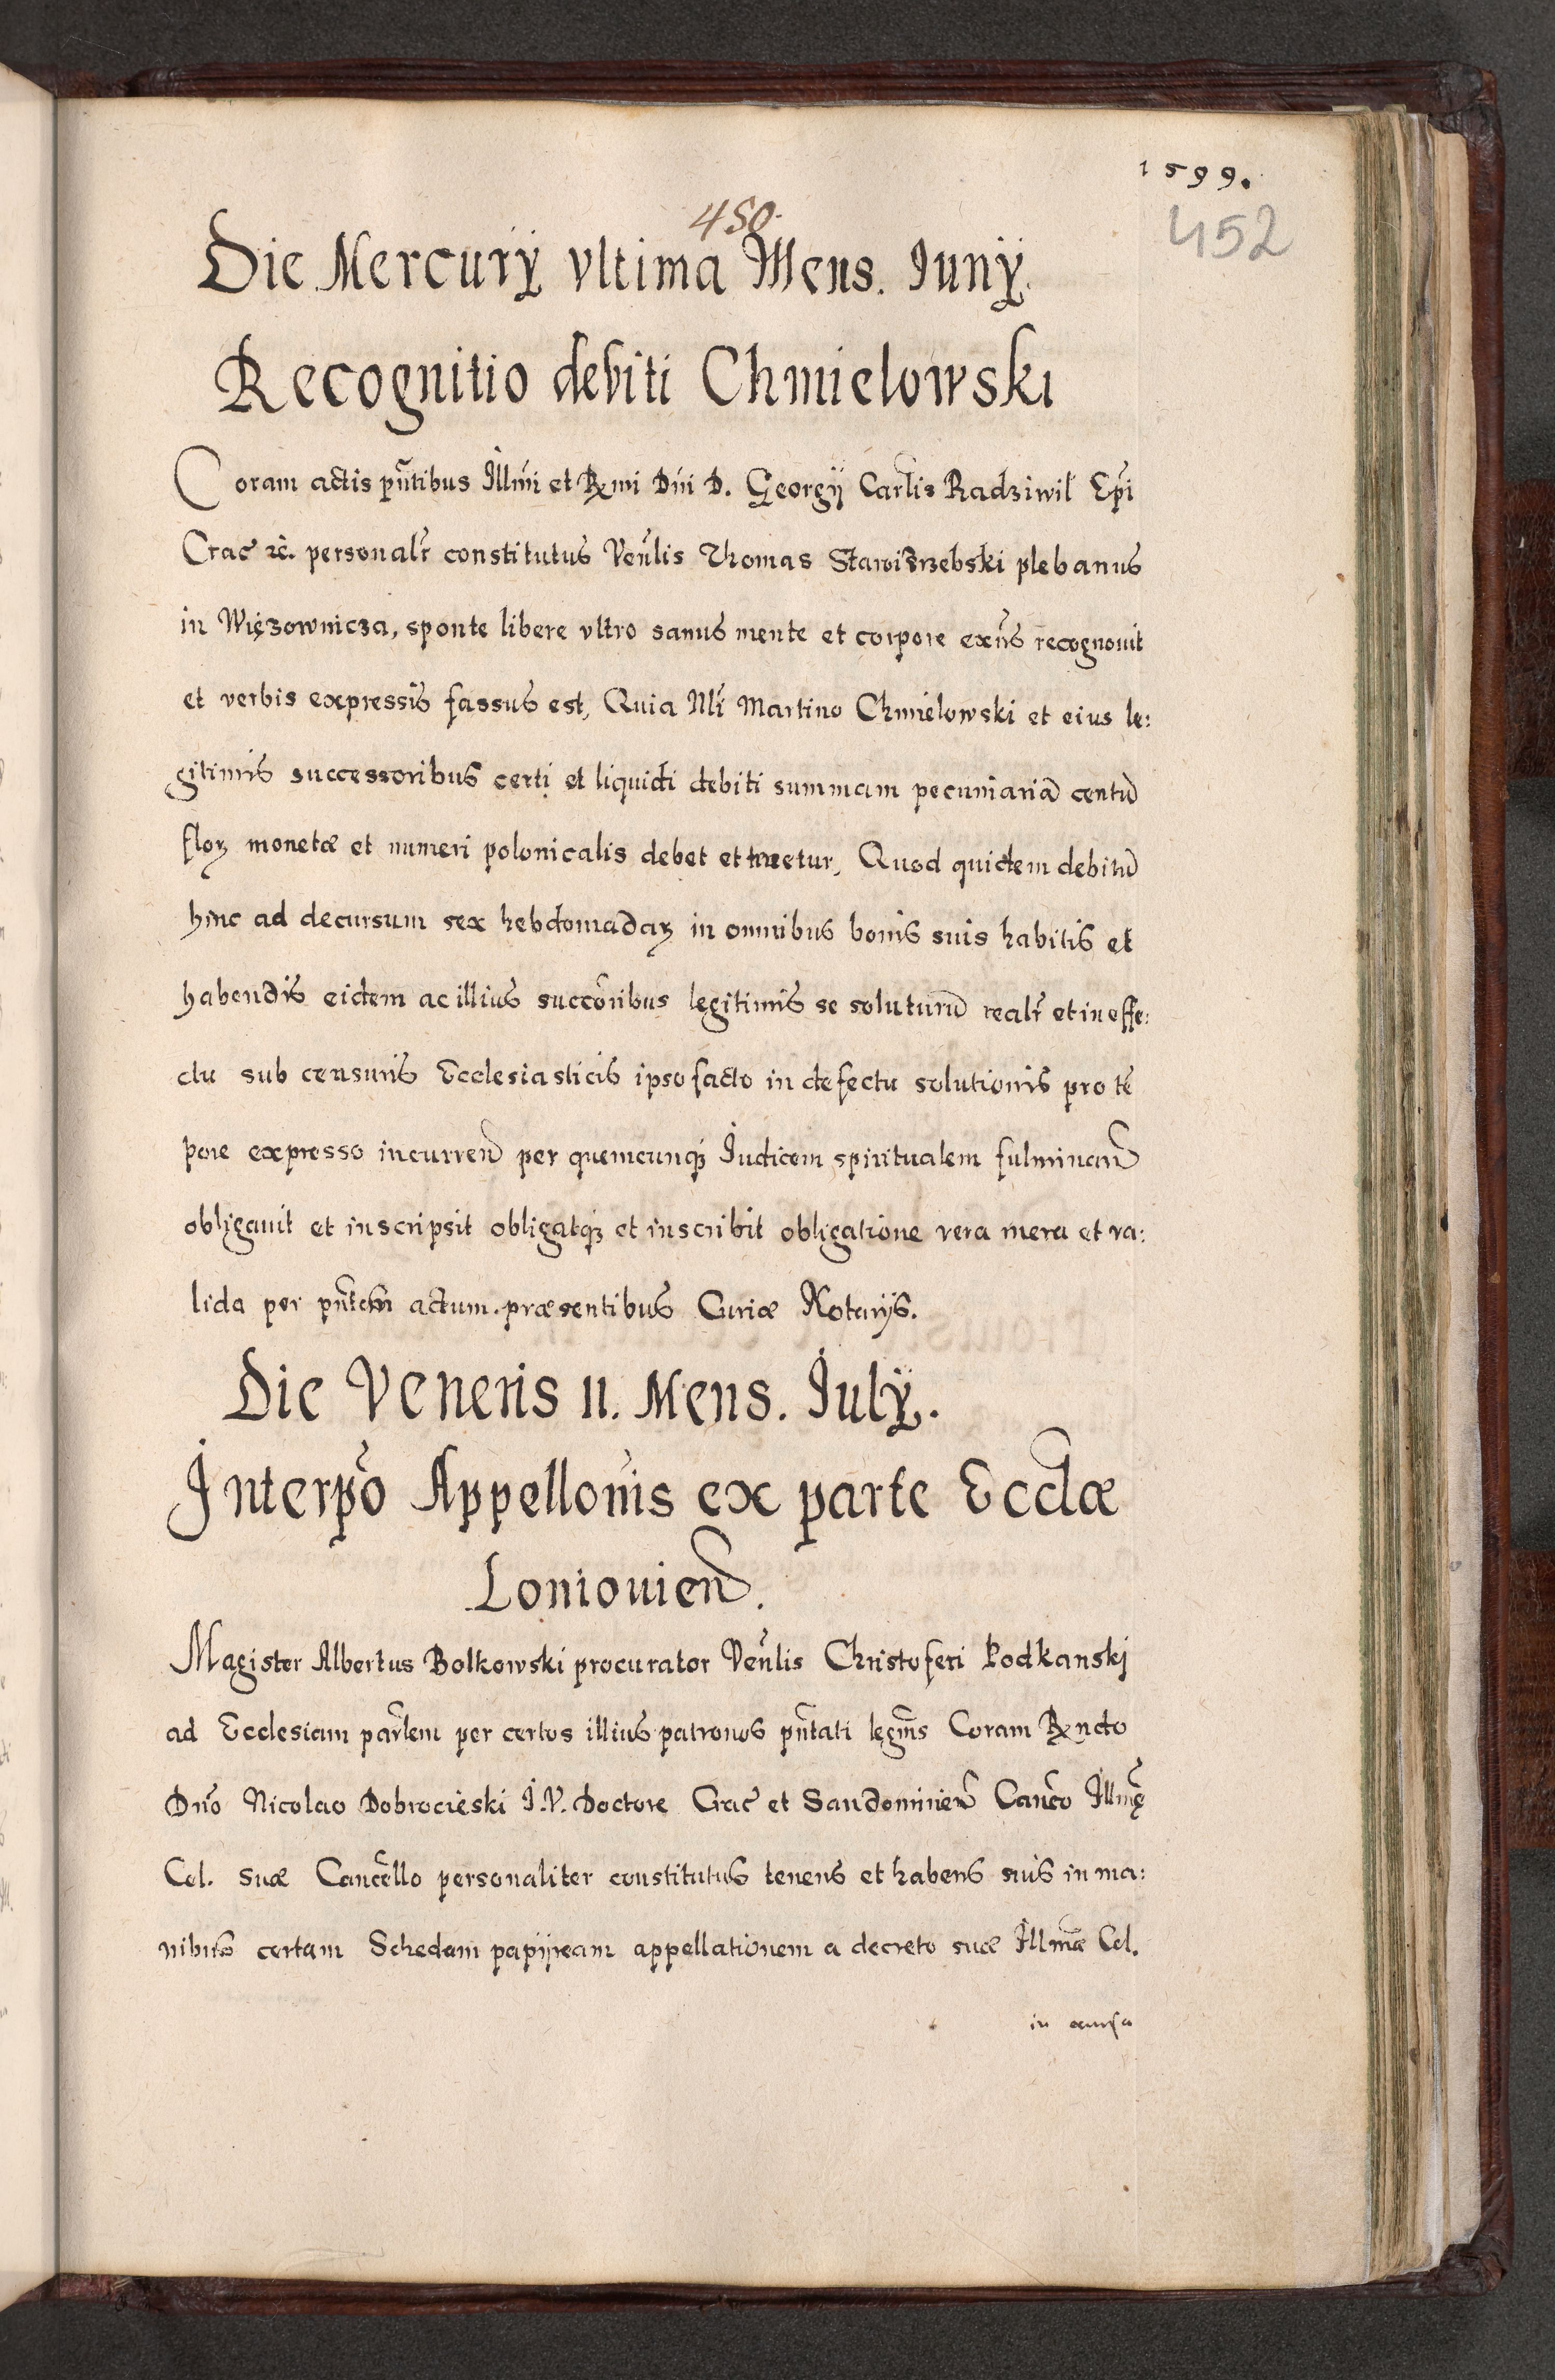 1599.
452
450.
Die Mercurÿ vltima Mens. Iunÿ.
Recognitio debiti Chmielowski
Coram actis pñtibus Illm̃i et Rxmi Dñi D. Georgÿ Carlis Radziwil Ep̃i
Crac̃ ꝛc̃. personalr̃ constitutus Veñlis Thomas Stawiszebski plebanus
in Więzownicza, sponte libere vltro sanus mente et corpore exñs recognouit
et verbis expressis fassus est, Quia Nli Martino Chmielowski et eius le:
gitimis successoribus certi et liquidi debiti summam pecuniariã centũ
floꝝ monetæ et numeri polonicalis debet et tnetur, Quod quidem debitũ
hinc ad decursum sex hebdomadaꝝ in omnibus bonis suis habitis et
habendis eidem ac illius succõribus legitimis se soluturũ realr̃ et in effe:
ctu sub censuris Ecclesiasticis ipso facto in defectu solutionis pro tẽ
pore expresso incurreñ per quemcunqꝫ Iudicem spiritualem fulminanñ
obligauit et inscripsit obligatqꝫ et inscribit obligatione vera mera et va:
lida per pñtem actum. præsentibus Curiæ Notarÿs.
Die Veneris 11. Mens. Iulÿ.
Interp̃o Appellõnis ex parte Eccl̃æ
Loniouieñ.
Magister Albertus Bolkowski procurator Veñlis Christoferi Podkanskj
ad Ecclesiam parl̃em per certos illius patronos pñtati legm̃s Coram Rxndo
Dño Nicolao Dobrocieski I.V. Doctore Crac̃ et Sandomirieñ Cañco Illmę̃
Cel. suæ Canc̃ello personaliter constitutus tenens et habens suis in ma:
nibus certam Schedam papÿream appellationem a decreto suæ Illm̃æ Cel.
in causa